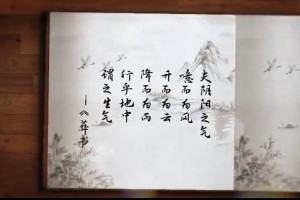 夫阴阳之气
噫而为风
升而为云
降而为雨
行乎地中
谓之生气
—《葬书